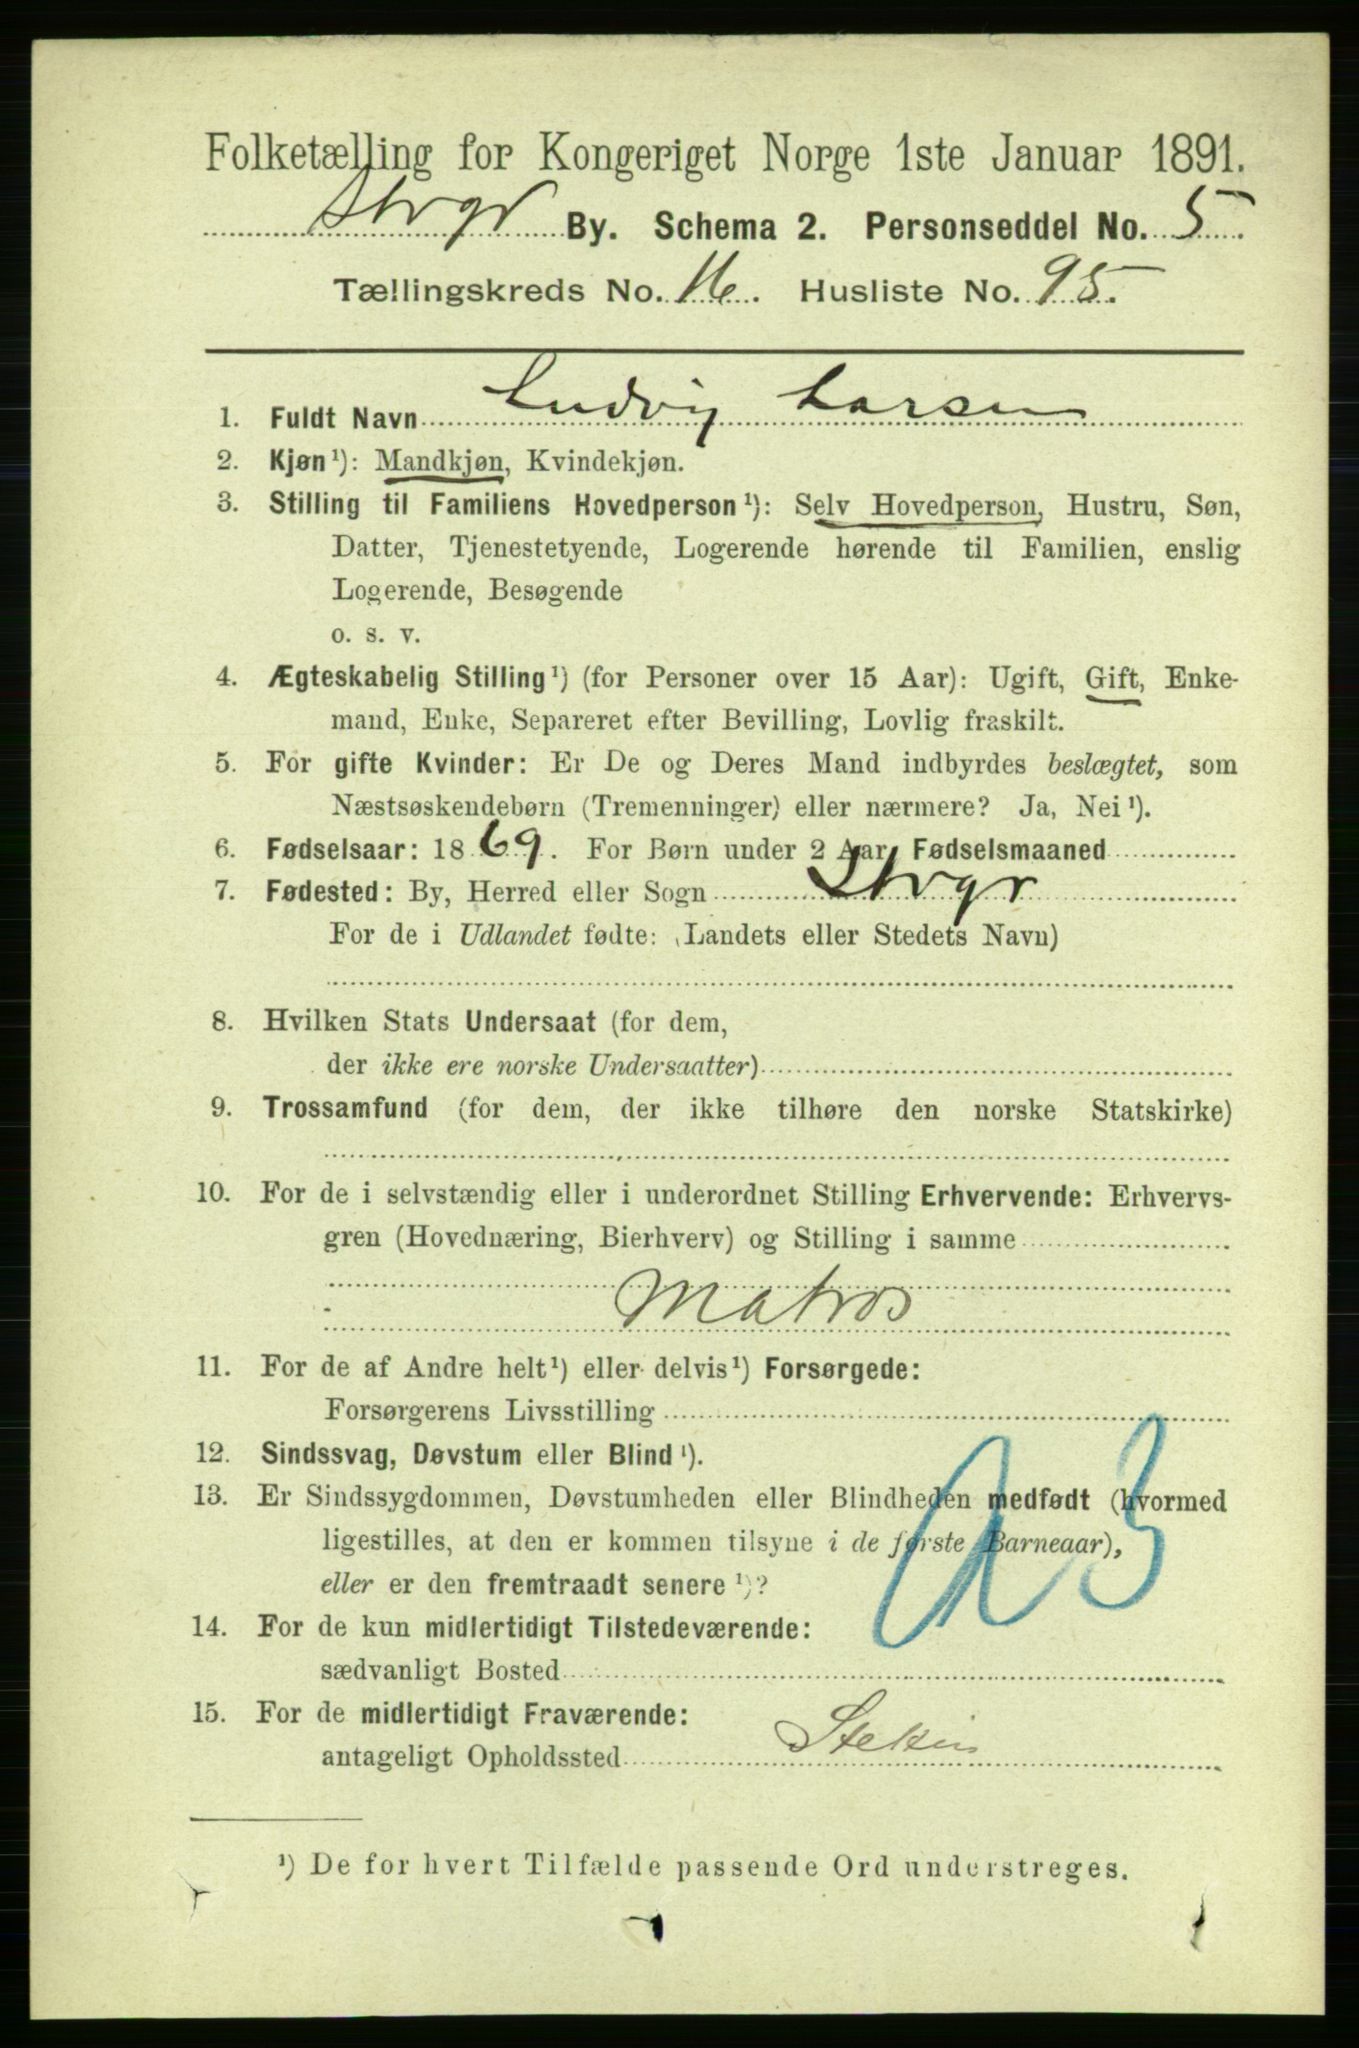 Folketælling for Kongeriget Norge 1ste Januar 1891.
Stvgr By. Schema 2. Personseddel No. 5.
Tællingskreds No. 16. Husliste No. 95.
1. Fuldt Navn Ludvig Larsen
2. Kjøn ¹): Mandkjøn, Kvindekjøn.
3. Stilling til Familiens Hovedperson ¹): Selv Hovedperson, Hustru, Søn,
Datter, Tjenestetyende, Logerende hørende til Familien, enslig
Logerende, Besøgende
o. s. v.
4. Ægteskabelig Stilling ¹) (for Personer over 15 Aar): Ugift, Gift, Enke-
mand, Enke, Separeret efter Bevilling, Lovlig fraskilt.
5. For gifte Kvinder: Er De og Deres Mand indbyrdes beslægtet, som
Næstsøskendebørn (Tremenninger) eller nærmere? Ja, Nei ¹).
6. Fødselsaar: 1869. For Børn under 2 Aar Fødselsmaaned
7. Fødested: By, Herred eller Sogn Stvgr
For de i Udlandet fødte: (Landets eller Stedets Navn)
8. Hvilken Stats Undersaat (for dem,
der ikke ere norske Undersaatter)
9. Trossamfund (for dem, der ikke tilhøre den norske Statskirke)
10. For de i selvstændig eller i underordnet Stilling Erhvervende: Erhvervs-
gren (Hovednæring, Bierhverv) og Stilling i samme
Matros
11. For de af Andre helt ¹) eller delvis ¹) Forsørgede:
Forsørgerens Livsstilling
12. Sindssvag, Døvstum eller Blind ¹).
13. Er Sindssygdommen, Døvstumheden eller Blindheden medfødt (hvormed
ligestilles, at den er kommen tilsyne i de første Barneaar),
eller er den fremtraadt senere ¹)?
14. For de kun midlertidigt Tilstedeværende:
sædvanligt Bosted
15. For de midlertidigt Fraværende:
antageligt Opholdssted
¹) De for hvert Tilfælde passende Ord understreges.